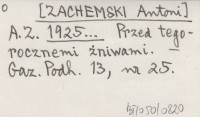 [ZACHEMSKI Antoni]
A.Z. 1925... Przed tego-
rocznemi żniwami. —
Gaz. Podh. 13, nr 25.